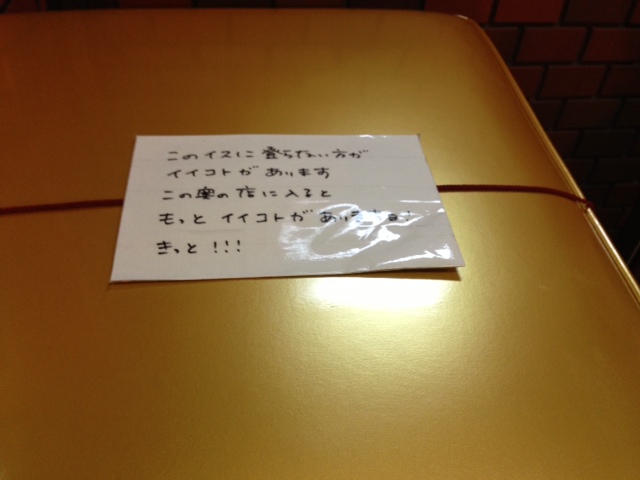 このイスに登らない方が
イイコトがあります
この奥の店に入ると
もっとイイコトがありますョ!
きっと!!!